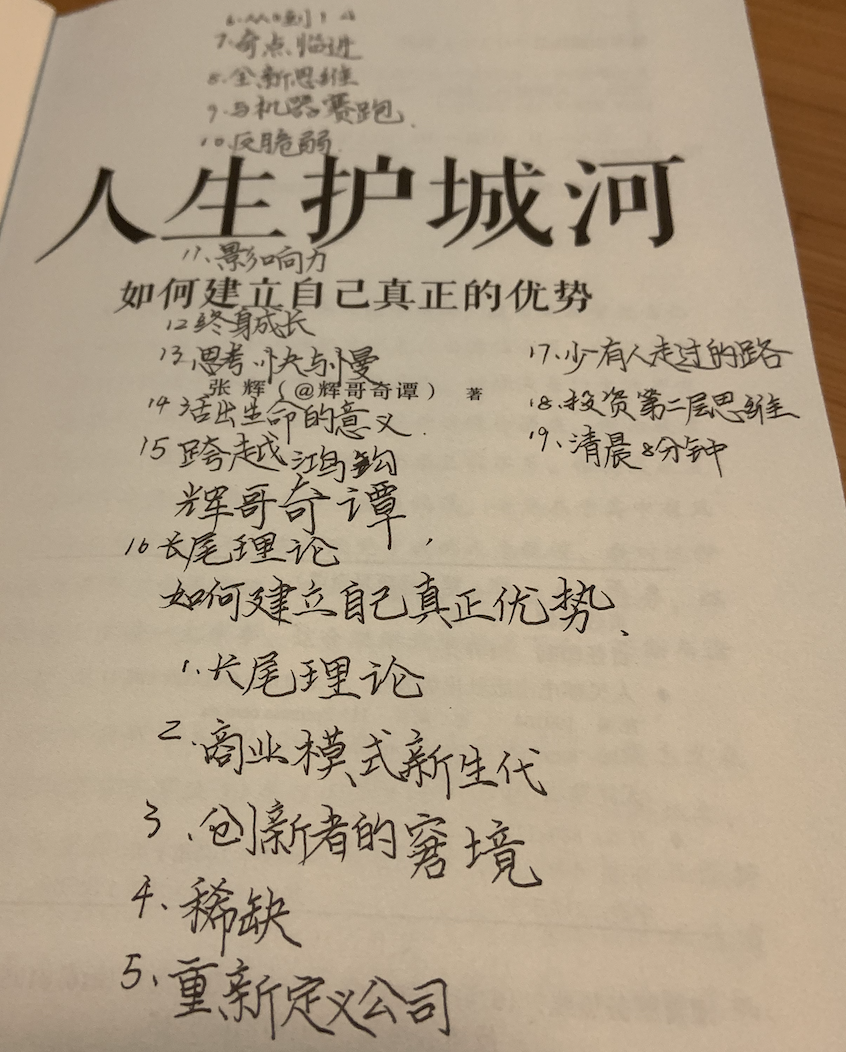 6.从0到1
7.奇点临近
8.全新思维
9.与机器赛跑.
10.反脆弱.
人生护城河
11、影响力
如何建立自己真正的优势
12终身成长
13.思考.快与慢
张 辉（@辉哥奇谭） 著
14活出生命的意义.
15跨越鸿钩
17.少有人走过的路
18.投资第二层思维
19、清晨8分钟
辉哥奇谭,
16长尾理论
如何建立自己真正优势、
1.长尾理论
2.商业模式新生代
3、创新者的窘境
4、稀缺
5、重新定义公司